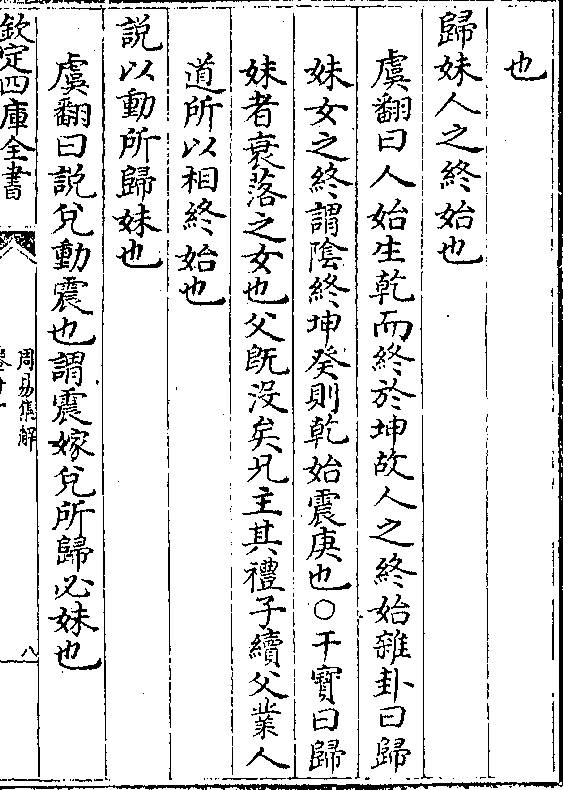 也
歸妹人之終始也
虞翻曰人始生乾而終於坤故人之終始雜卦曰歸
妹女之終謂陰終坤癸則乾始震庚也○干寶曰歸
妹者衰落之女也父既没矣兄主其禮子續父業人
道所以相終始也
説以動所歸妹也
虞翻曰説兊動震也謂震嫁兊所歸必妹也
欽定四庫全書
周易集解
八